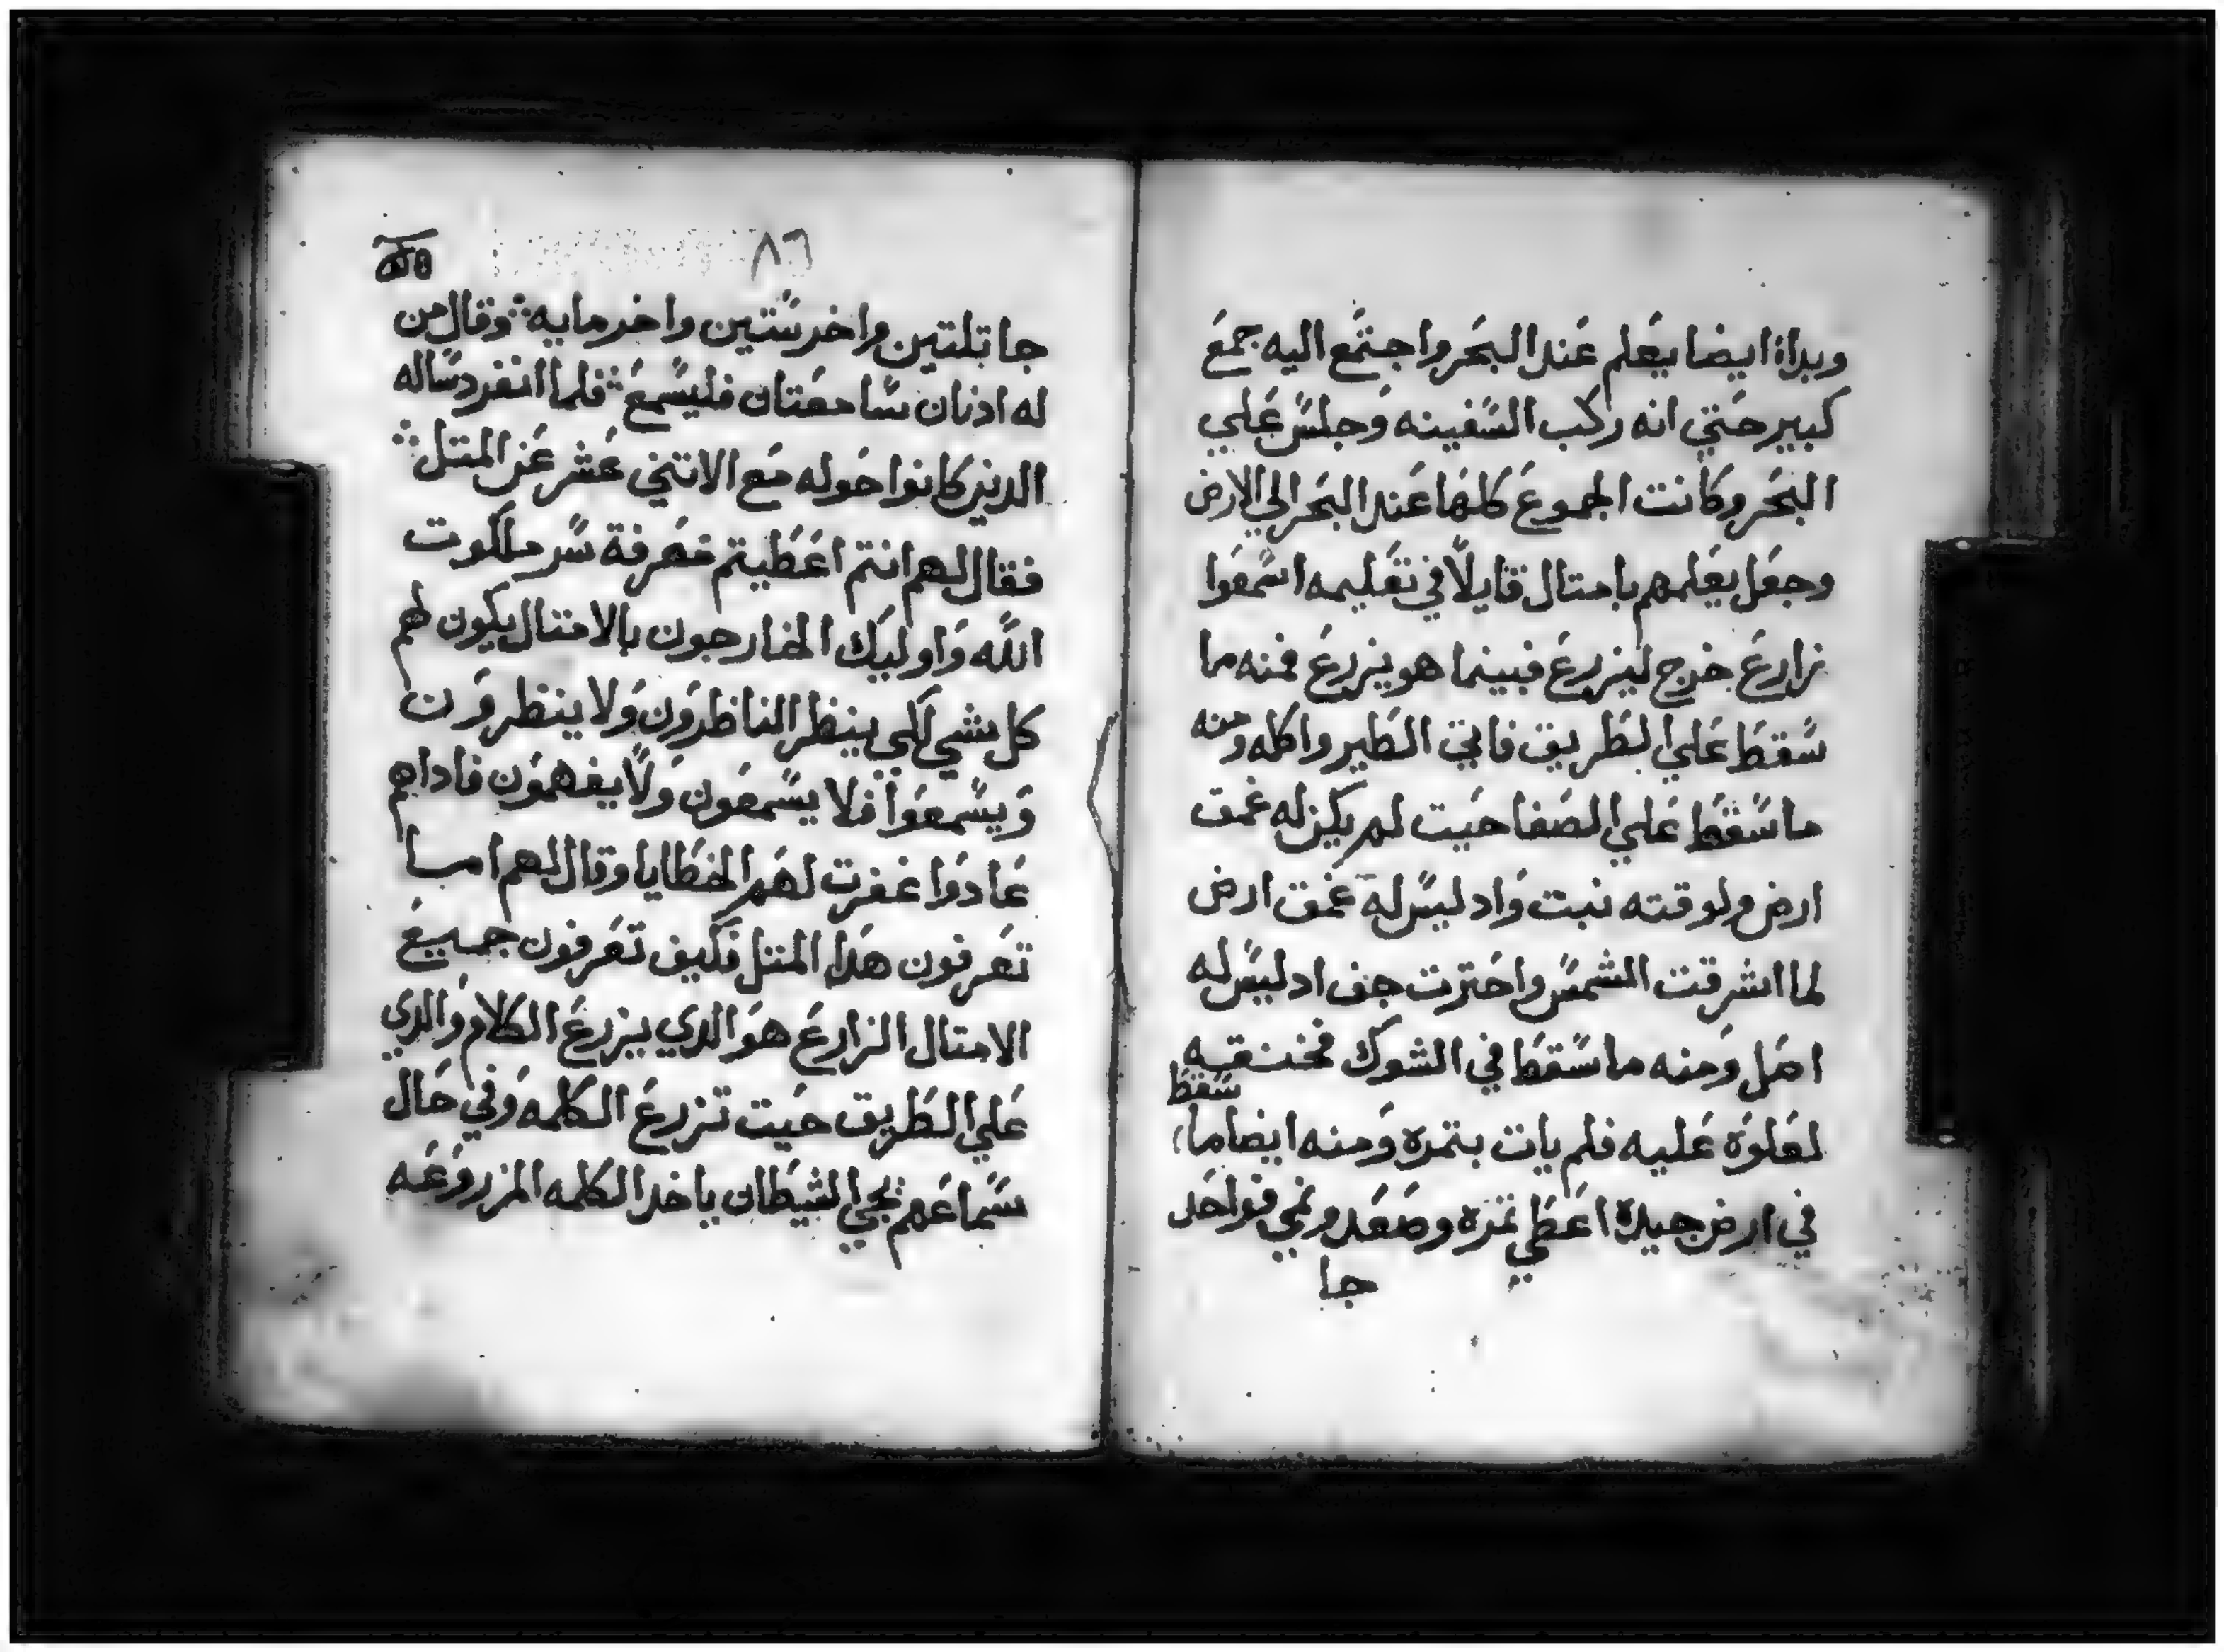 وبداه ايضا يعلم عند البحر واجتمع اليه جمع
كبير حتي انه ركب السفينه وجلس علي
البحر وكانت الجموع كلها عند البحر الي الارض
وجعل يعلمهم بامتال قايلا في تعليمه اسمعوا
زارع خرج ليزرع فبينما هو يزرع فمنه ما
سقط علي الطريق فاتي الطير واكله ومنه
ما سقط علي الصفا حيت لم يكن له عمق
ارض ولوقته نبت واد ليس له عمق ارض
لما اشرقت الشمس واحترت جف اد ليس له
اصل ومنه ما سقط في الشوك فخنقه
لعلوه عليه فلم يات بتمره ومنه ايضا ما سقط
في ارض جيدة اعطي تمره وصعد ونمي فواحد
جا
٨٦
جا بتلتين واخر ستين واخر مايه وقال من
له ادنان سامعتان فليسمع فلما انفرد ساله
الدين كانوا حوله مع الاتني عشر عن المتل
فقال لهم انتم اعطيتم معرفة سر ملكوت
الله واوليك الخارجون بالامتال يكون لهم
كل شي لكي ينظر الناظرون ولا ينظرون
ويسمعوا فلا يسمعون ولا يفهمون فاداهم
عادوا غفرت لهم الخطايا وقال لهم اما
تعرفون هدا المتل فكيف تعرفون جميع
الامتال الزارع هو الدي يزرع الكلام والدي
علي الطريق حيت تزرع الكلمه وفي حال
سماعهم يجي الشيطان ياخد الكلمه المزروعه